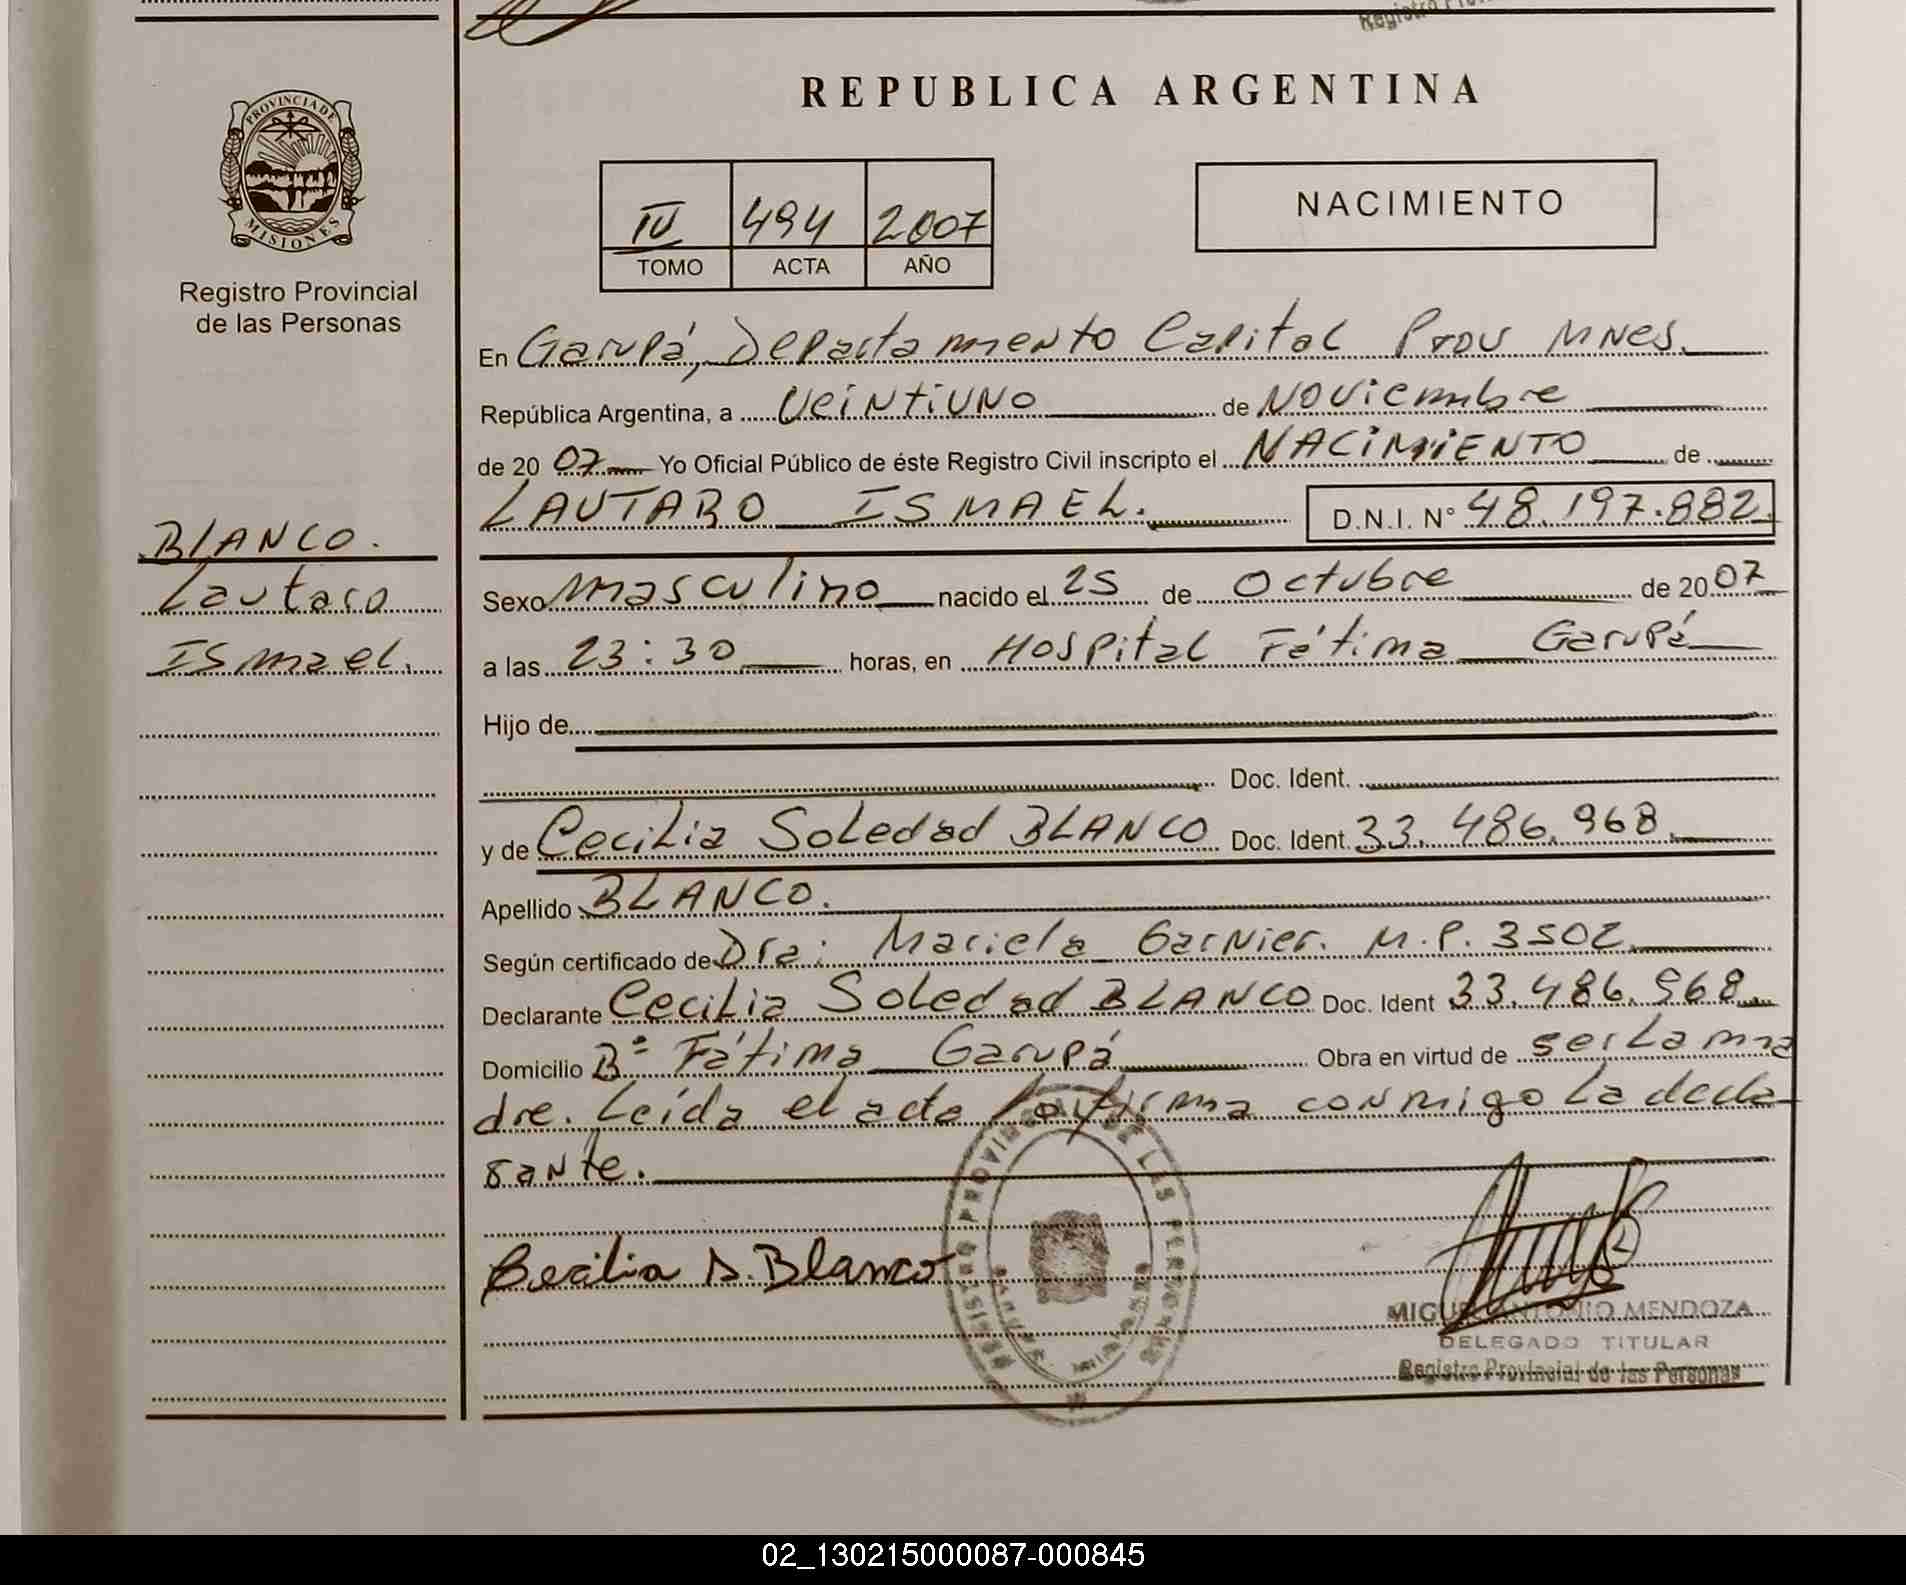 Registro Pro
PROVINCIA DE
MISIONES
Registro Provincial
de las Personas
BLANCO.
Lautaro
Ismael.
REPUBLICA ARGENTINA
IV 494 2007
TOMO ACTA AÑO
NACIMIENTO
En Garupá, Departamento Capital Prov MNes.
República Argentina, a Veintiuno de Noviembre
de 2007 Yo Oficial Público de éste Registro Civil inscripto el NACIMIENTO de
LAUTARO ISMAEL. D.N.I. N° 48.197.882.
Sexo masculino nacido el 25 de Octubre de 2007
a las 23:30 horas, en Hospital Fátima Garupá
Hijo de
Doc. Ident.
y de Cecilia Soledad BLANCO Doc. Ident. 33.486.968.
Apellido BLANCO.
Según certificado de Dra: Mariela Garnier. M.P. 3502.
Declarante Cecilia Soledad BLANCO Doc. Ident 33.486.968.
Domicilio B° Fátima Garupá Obra en virtud de ser La ma
dre. Leída el acta la firma conmigo La decla
rante.
Cecilia S. Blanco
REGISTRO PROVINCIAL DE LAS PERSONAS
MIGUEL ANTONIO MENDOZA
DELEGADO TITULAR
Registro Provincial de las Personas
02_130215000087-000845